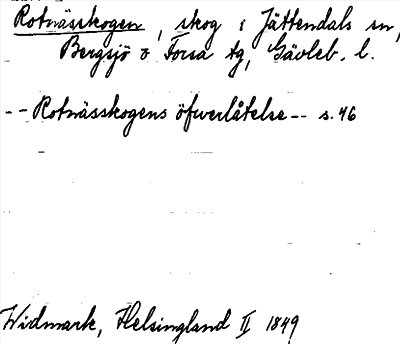 Rotnässkogen, skog i Jättendals sn,
Bergsjö o Forsa tg, Gävleb. l.
-- Rotnässkogens öfwerlåtelse -- s. 46
Widmark, Helsingland II 1849